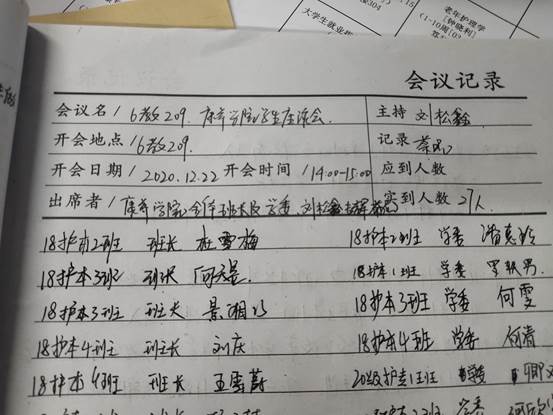 大学生就业指
304
老年护理学
[钟晓利]
(1-10周[03
会议记录
会议名 / 6教209. 康养学院学生座谈会. 主持 刘松鑫
开会地点 / 6教209. 记录
开会日期 / 2020.12.22 开会时间 / 14:00-15:00 应到人数
出席者 / 康养学院 班长 学委 刘松鑫 实到人数 27人.
18护本2班 班长 杜雪梅 18护本2班 学委 潘意玲
18护本3班 班长 18护本1班 学委 罗 男.
18护本3班 班长 景湘 18护本3班 学委 何雯
18护本4班 班长 刘庆 18护本4班 学委 何清
18护本4班 班长 王雪蔚 20级护专12班